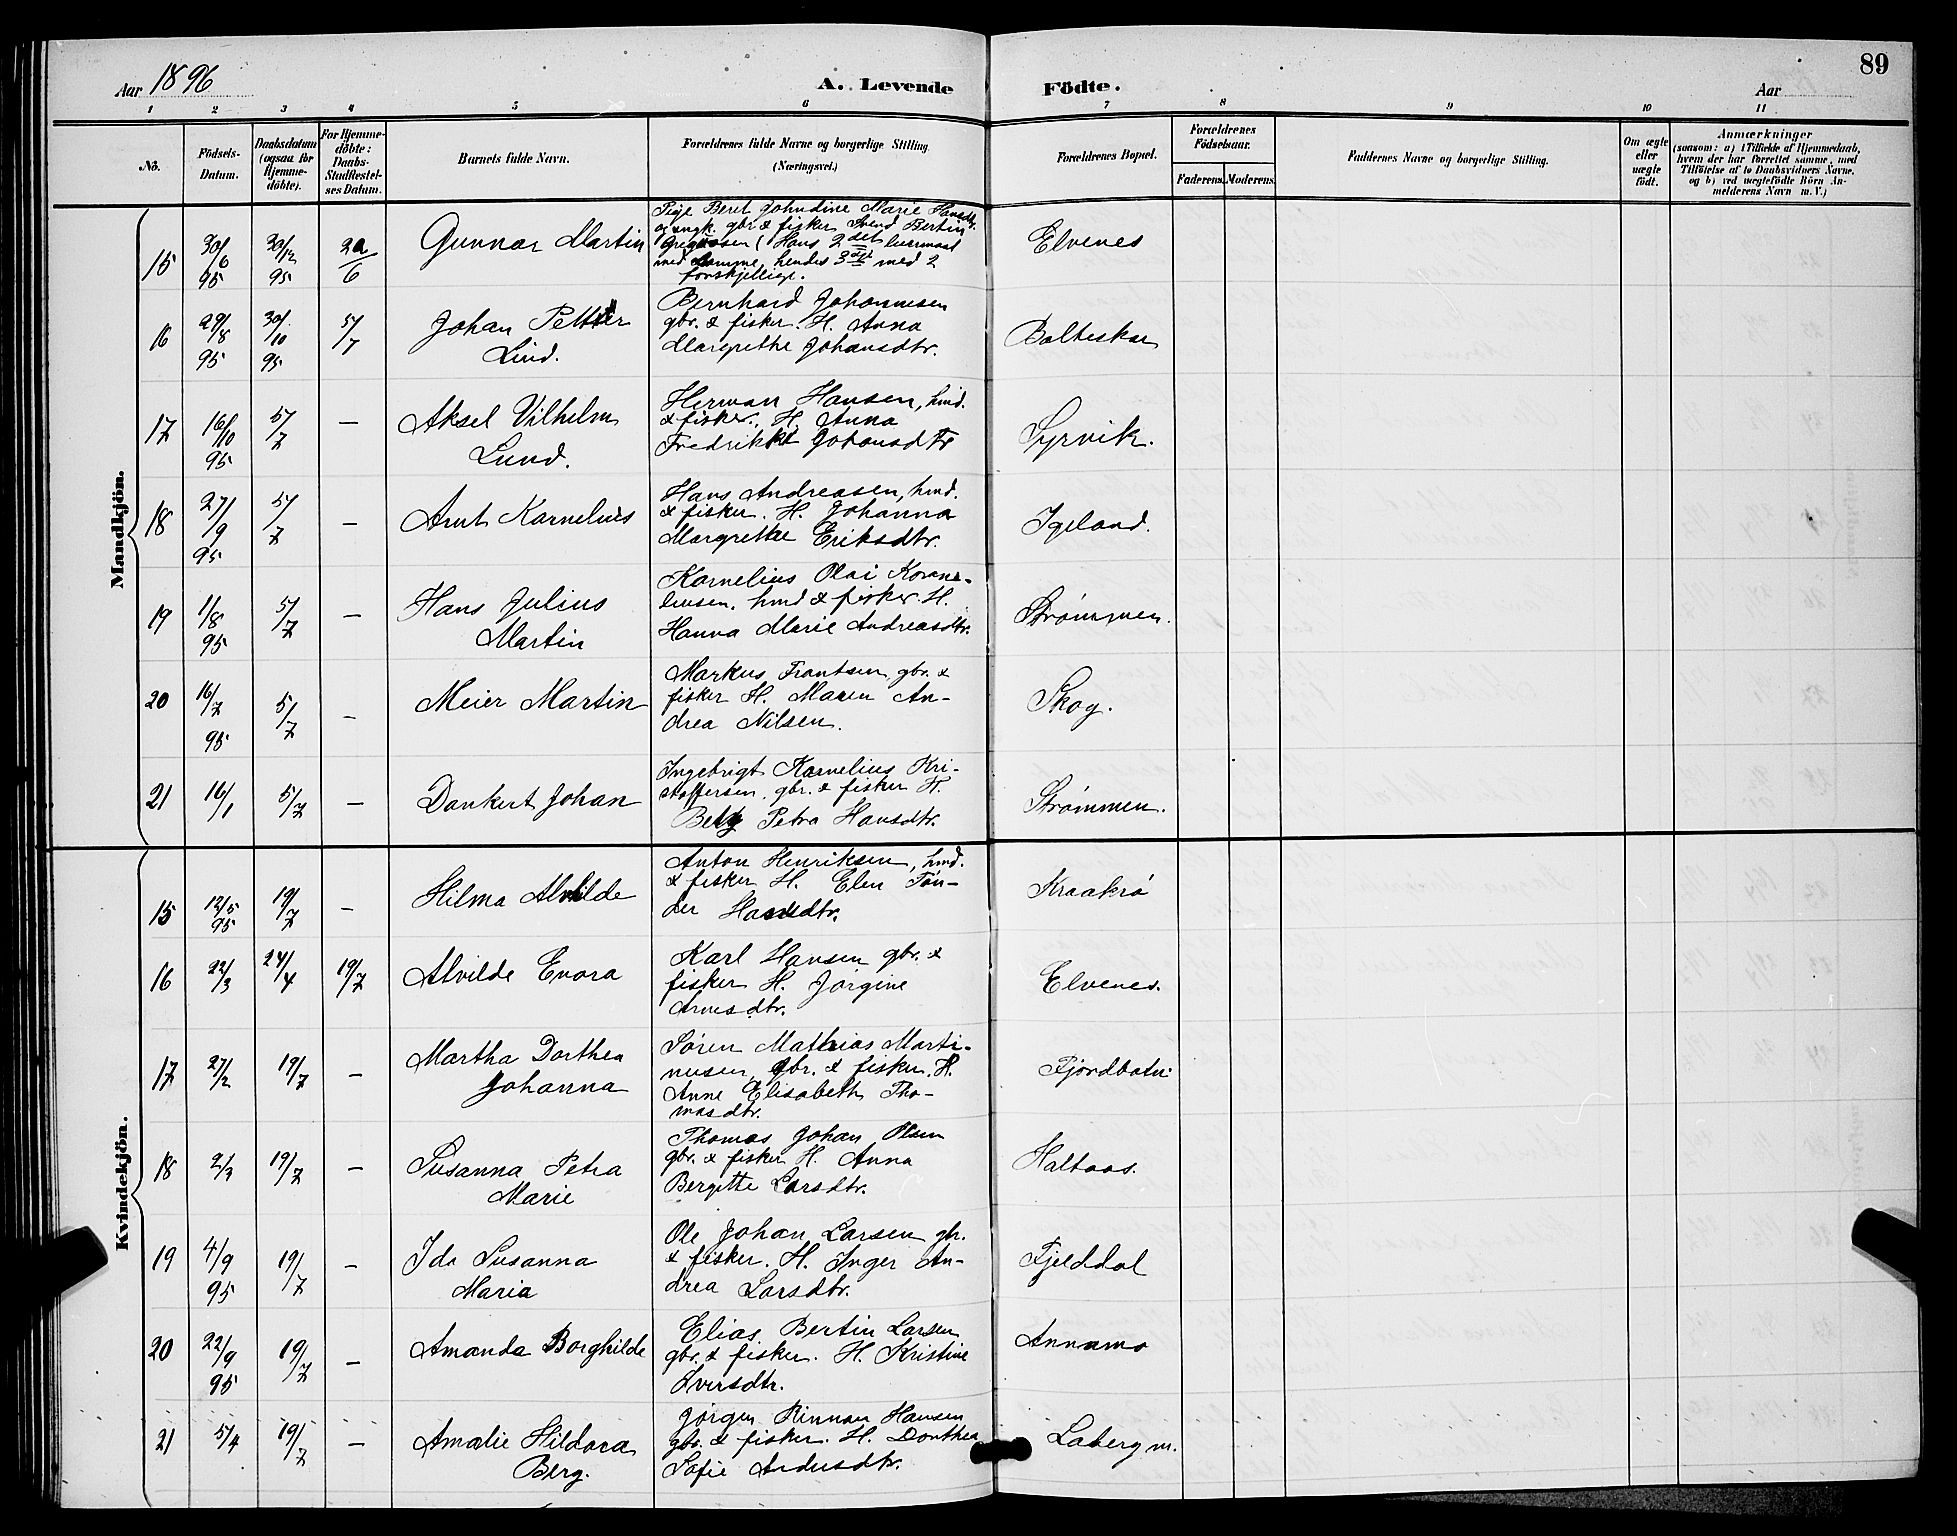 89
Aar 1896
A. Levende
Födte.
Aar
1 2 3 4 5 6 7 8 9 10 11
No.
Födsels-Datum.
Daabsdatum (ogsaa for Hjemme-döbte).
For Hjemme-döbte: Daabs-Stadfæstel-ses Datum.
Barnets fulde Navn.
Forældrenes fulde Navne og borgerlige Stilling.
(Næringsvei.)
Forældrenes Bopæl.
Forældrenes Födselsaar.
Faderens. Moderens.
Faddernes Navne og borgerlige Stilling.
Om ægte eller uægte födt.
Anmærkninger
(saasom: a) i Tilfælde af Hjemmedaab,
hvem der har forrettet samme, med
Tilföielse af to Daabsvidners Navne,
og b) ved uægtefödte Börn An-
melderens Navn m. V.)
Mandkjön.
15 30/6 95 30/12 95 Gunnar Martin
Pige Berit Johndine Marie Hansdtr.
og ungk. gbr & fisker Svend Bertin
(Hans 2det leiermaal
med samme, hendes 3die med 2
forskjellige.
Elvenes
16 29/8 95 30/10 95 5/7 Johan Petter
Lind.
Bernhard Johannesen
gbr. & fisker. H. Anna
Margrethe Johansdtr.
Balteskar
17 16/10 95 5/7 — Aksel Vilhelm
Lund.
Herman Hansen, hmd.
& fisker. H. Anna
Fredrikke Johansdtr
Syrvik.
18 27/9 95 5/7 — Arnt Kornelius
Hans Andreasen, hmd.
& fisker. H. Johanna
Margrethe Eriksdtr.
Igeland.
19 1/8 95 5/7 — Hans Julius
Martin
Kornelius Olai Korne-
liusen. hmd & fisker. H.
Hanna Marie Andreasdtr.
Strømmen.
20 16/7 95 5/7 — Meier Martin
Markus Frantsen gbr. &
fisker H. Maren An-
drea Nilsen.
Skog.
21 16/1 5/7 — Dankert Johan
Ingebrigt Kornelius Kri-
stoffersen. gbr. & fisker H.
Petra Hansdtr.
Strømmen.
Kvindekjön.
15 12/5 95 19/7 — Hilma Alvilde
Anton Henriksen, hmd.
& fisker H. Elen Tøn-
der Hansdtr.
Kraakrø
16 22/3 24/4 19/7 Alvilde Enora
Karl Hansen gbr. &
fisker H. Jørgine
Arnesdtr.
Elvenes.
17 27/2 19/7 — Martha Dorthea
Johanna
Søren Mathias Marti-
nusen, gbr. & fisker. H.
Anne Elisabeth Tho-
masdtr.
Fjordbotn.
18 2/3 19/7 — Susanna Petra
Marie
Thomas Johan Olsen
gbr. & fisker H. Anna
Bergitte Larsdtr.
Haltaas.
19 4/9 95 19/7 — Ida Susanna
Maria
Ole Johan Larsen gbr.
& fisker. H. Inger An-
drea Larsdtr.
Fjelddal
20 22/9 95 19/7 — Amanda Borghilde
Elias Bertin Larsen
gbr. & fisker. H. Kristine
Iversdtr.
Annamo
21 5/4 19/7 — Amalie Hildora
Berg.
Jørgen Rinnan Hansen
gbr. & fisker. H. Dorthea
Sofie Andersdtr.
Laberg m.